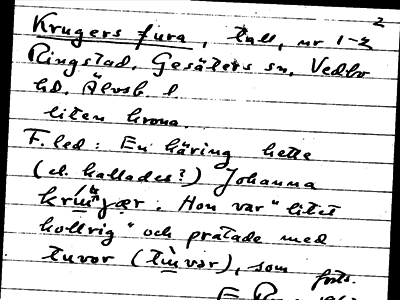 2
Krugers fura, tall, nr 1-2
Ringstad, Gesäters sn, Vedbo
hd, Älvsb l
liten krona.
F. led: En käring hette
(el. kallades?) Johanna
"litet
kollrig" och pratade med
tuvor (tùvər), som
forts.